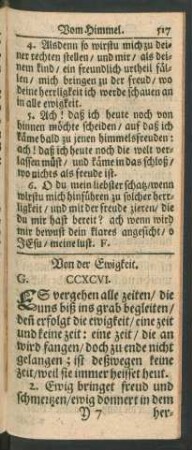 Vom Himmel. 517
4. Alsdenn so wirstu mich zu dei-
ner rechten stellen/ und mir/ als dei-
nem kind/ ein freundlich urtheil fäl-
len/ mich bringen zu der freud/ wo
deine herrligkeit ich werde schauen an
in alle ewigkeit.
5. Ach! daß ich heute noch von
hinnen möchte scheiden/ auf daß ich
käme bald zu jenen himmelsfreuden:
ach! daß ich heute noch die welt ver-
lassen müst/ und käme in das schloß/
wo nichts als freude ist.
6. O du mein liebster schatz/ wenn
wirstu mich hinführen zu solcher herr-
ligkeit/ und mit der freude zieren/ die
du mir hast bereit? ach wenn wird
mir bewust dein klares angesicht/ o
JEsu/ meine lust. F.
Von der Ewigkeit.
G. CCXCVI.
ES vergehen alle zeiten/ die
uns biß ins grab begleiten/
deñ erfolgt die ewigkeit/ eine zeit
und keine zeit: eine zeit/ die an
wird fangen/ doch zu ende nicht
gelangen: ist deßwegen keine
zeit/ weil sie immer heisset heut.
2. Ewig bringet freud und
schmertzen/ ewig donnert in dem
Y 7 her-